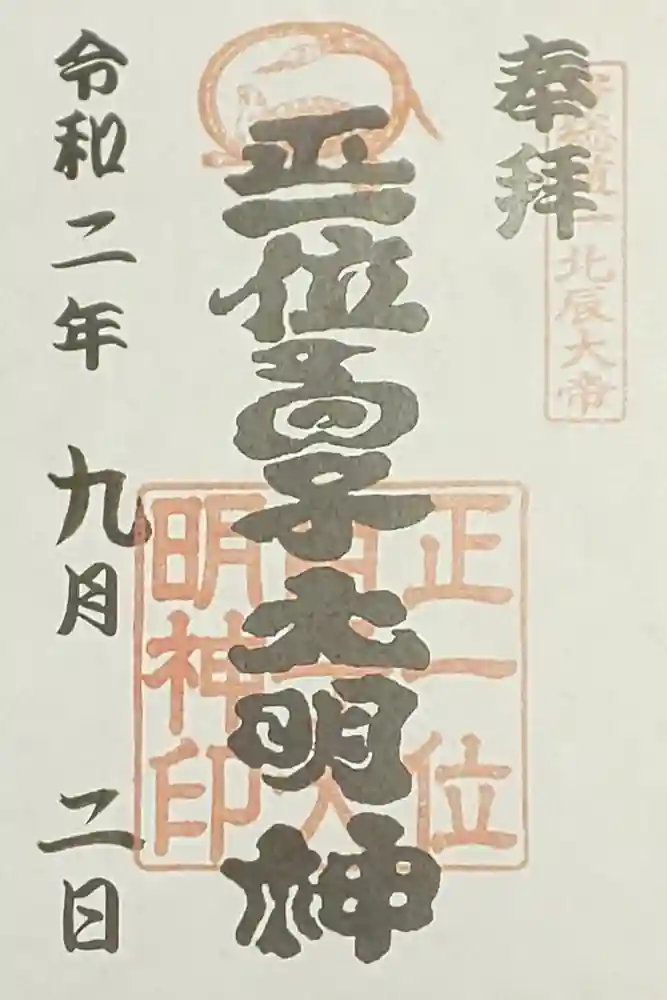 奉拝
総
一北辰大帝
正一位白子大明神
正一位
白子大
明神印
令和二年九月二日